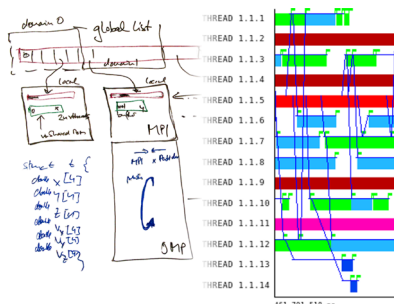 domain 0
global list
domain 1
local
local
buffer
MPI
struct t {
double x [4]
double y [4]
double z [4]
double Vx [4]
double Vy [4]
double Vz [4]
}
MPI
OMP
THREAD 1.1.1
THREAD 1.1.2
THREAD 1.1.3
THREAD 1.1.4
THREAD 1.1.5
THREAD 1.1.6
THREAD 1.1.7
THREAD 1.1.8
THREAD 1.1.9
THREAD 1.1.10
THREAD 1.1.11
THREAD 1.1.12
THREAD 1.1.13
THREAD 1.1.14